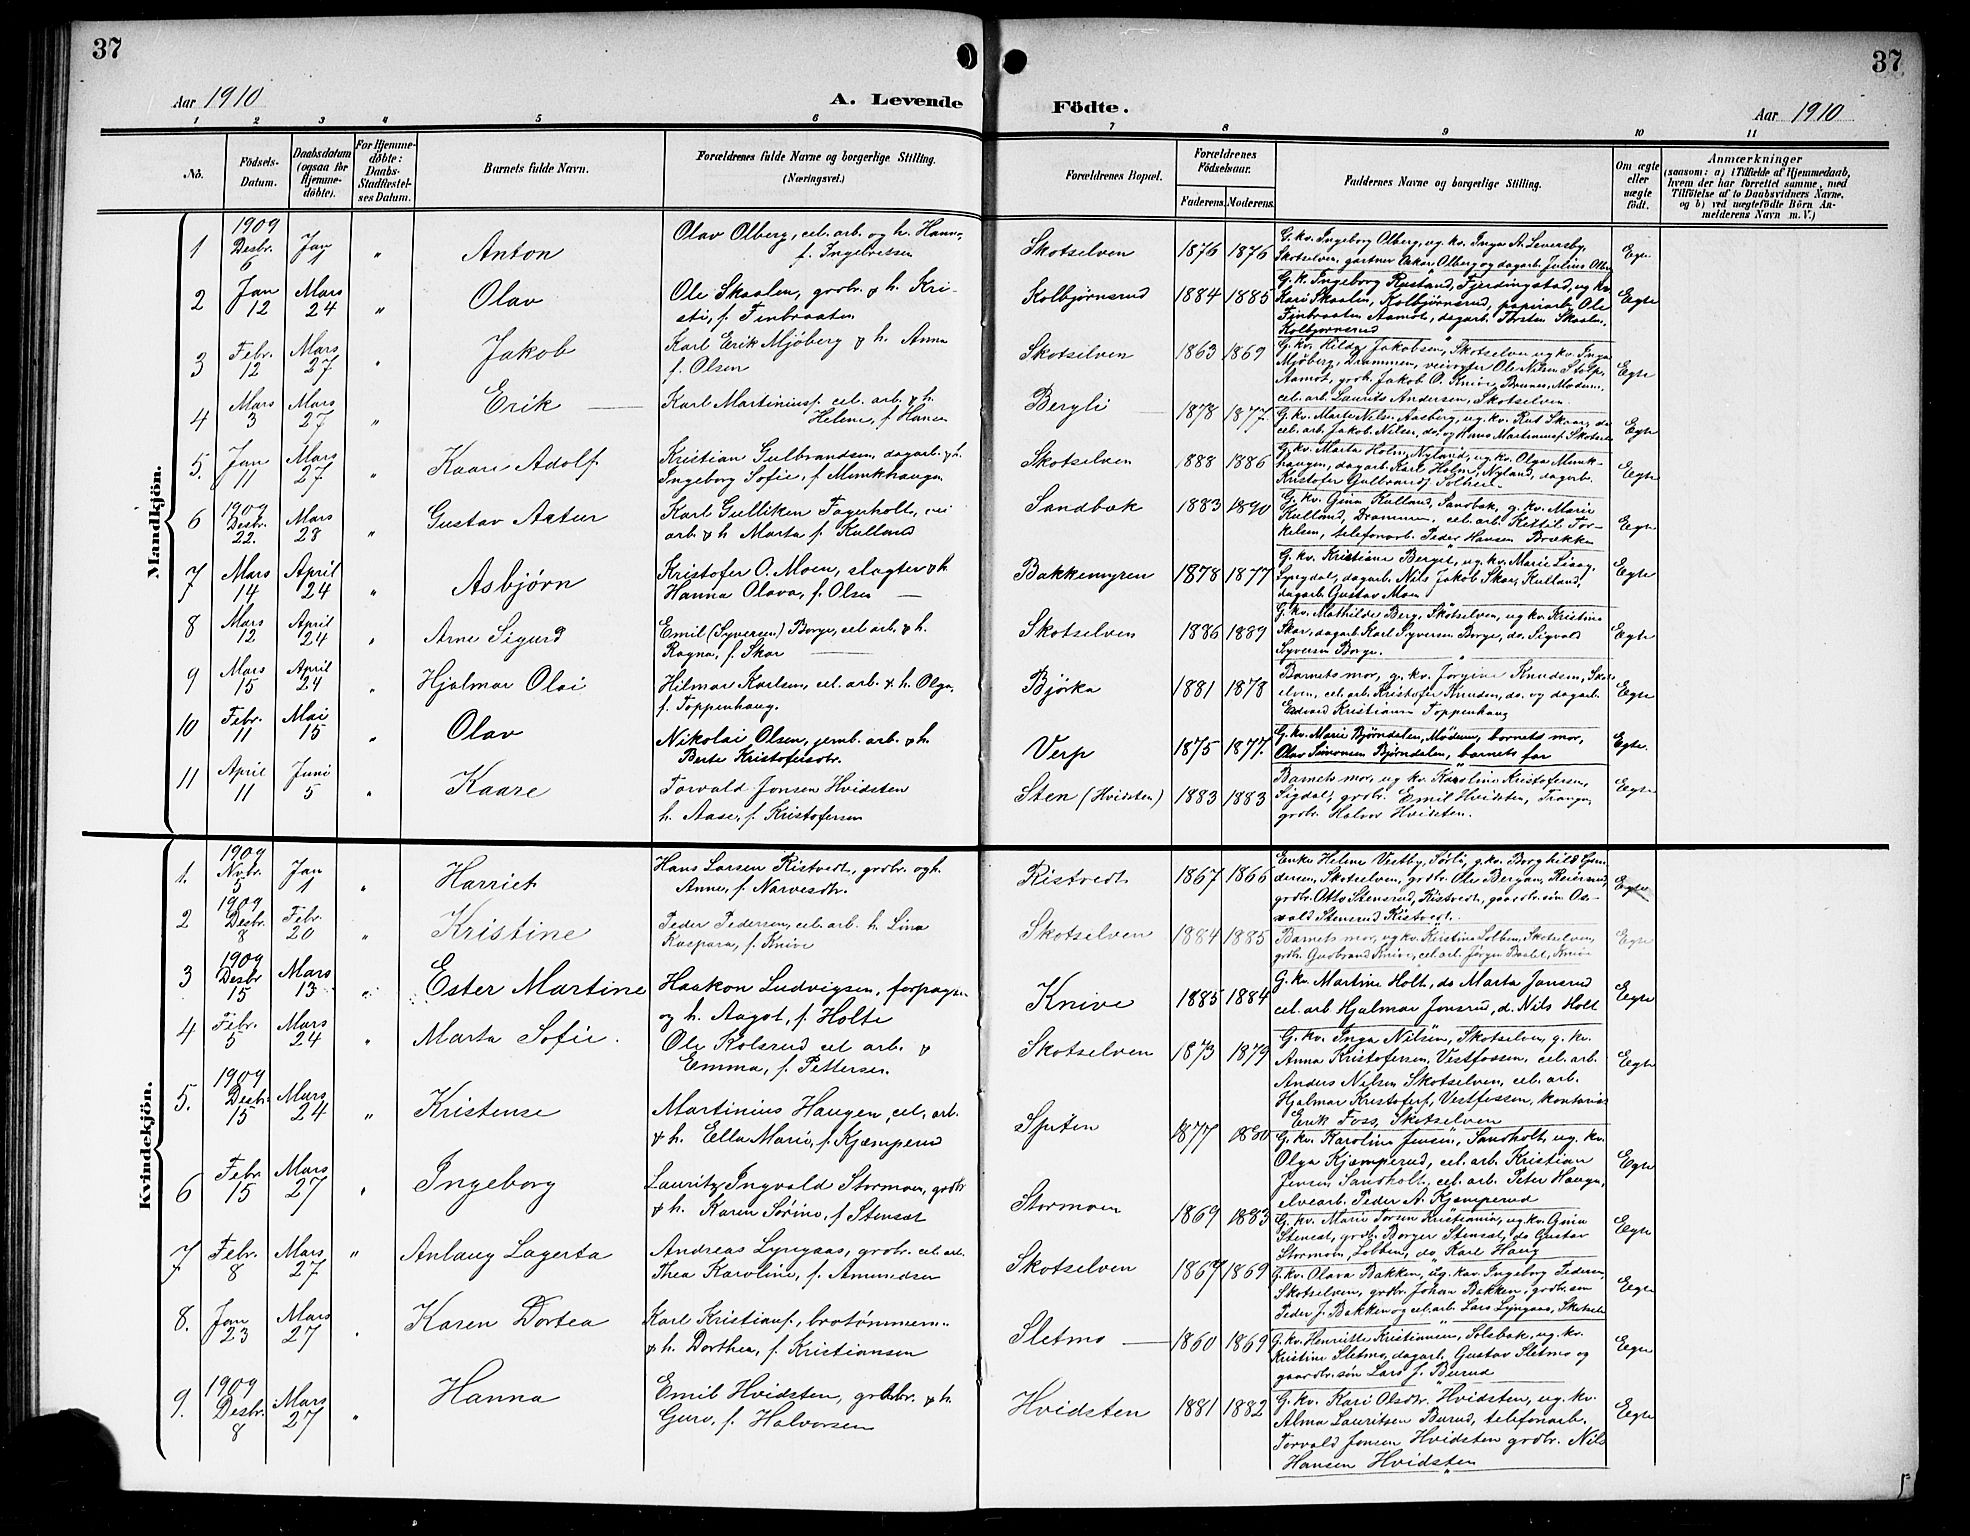 37
37
Aar 1910
A. Levende
Födte.
Aar 1910
1 2 3 4 5 6 7 8 9 10 11
No.
Födsels-
Datum.
Daabsdatum
(ogsaa for
Hjemme-
døbte).
For Hjemme-
døbte:
Daabs-
Stadfæstel-
ses Datum.
Barnets fulde Navn.
Forældrenes fulde Navne og borgerlige Stilling.
(Næringsvei.)
Forældrenes Bopæl.
Forældrenes
Fødselsaar.
Faderens. Moderens.
Faddernes Navne og borgerlig Stilling.
Om ægte
eller
uægte
født.
Anmærkninger
(saasom: a) i Tilfælde af Hjemmedaab,
hvem der har forrettet samme, med
Tilføielse af to Daabsvidners Navne,
og b) ved uægtefødte Börn An-
melderens Navn m. V.)
Mandkjön.
1 1909 Desbr. 6 Jan 1 " Anton
Olav Olberg, cel. arb. og h. Hanna,
f. Ingebretsen
Skotselven 1876 1876
G. kv. Ingeborg Olberg, ug. kv. Inga A. Leversby,
Skotselven, gartner Oskar Olberg og dagarb. Julius Olberg
Egte
2 Jan 12 Mars 24 " Olav
Ole Skaalen, grdbr. & h. Kri-
sti, f. Finbraaten
Kolbjørnsrud 1884 1885
G. k. Ingeborg Rustand, Fjerdingstad, ug. kv.
Kari Skaalen, Kolbjørnsrud, papirarb. Ole
Finbraaten Aamot, dagarb. Torsten Skaalen,
Kolbjørnsrud
Egte
3 Febr. 12 Mars 27 " Jakob
Karl Erik Mjöberg & h. Anna
f. Olsen
Skotselven 1863 1869
G. kv. Hilda Jakobsen, Skotselven ug. kv. Inga
Mjøberg, Drammen, veivogter Ole Nilsen Stolp,
Aamot, grdb. Jakob O. Knive, Modum,
cel. arb. Laurits Andersen, Skotselven.
Egte
4 Mars 3 Mars 27 " Erik
Karl Martiniusf. cel. arb. & h.
Helene, f. Hansen
Bergli 1878 1877.
G. kv. Marte Nilsen Aasberg, ug. kv. Rut Skaar, do
cel. arb. Jakob Nilsen, do. og Hans Martiniusf. Skotselv.
Egte
5. Jan 11 Mars 27 " Kaare Adolf
Kristian Gulbrandsen, dagarb. & h.
Ingeborg Sofie, f. Munkhaugen
Skotselven 1888 1886
G. kv. Marta Holm, Nyland, ug. kv. Olga Munk-
haugen, dagarb. Karl Holm, Nyland, dagarb.
Kristofer Gulbrandsf.
Egte
6 1909 Desbr. 22. Mars 28 " Gustav Artur
Karl Gulliken Fagerholt, vei
arb. & h. Marta f. Kulland
Sandbæk 1883 1890
G. kv. Gina Kulland, Sandbæk, g. kv. Marie
Kulland, Drammen, cel. arb. Kittil Tor-
kelsen, telefonarb. Peder Hansen Brekke
Egte
7 Mars 14 April 24 " Asbjørn
Kristofer O. Moen, slagter & h
Hanna Olava, f. Olsen
Bakkemyren 1878 1877
G. kv. Kristiane Berget, ug. kv. Marie
Lyngdal, dagarb. Nils Jakob Skar, Kulland,
dagarb. Gustav Moen
Egte
8 Mars 12 April 24 " Arne Sigurd
Emil (Syversen) Borge, cel. arb. & h.
Ragna, f. Skar
Skotselven 1886 1889
G. kv. Mathilde Berg, Skotselven, ug kv. Kristine
Skar, dagarb. Karl Syversen Borge, do. Sigvald
Syversen Borge.
Egte
9 Mars 15 April 24 " Hjalmar Olai
Hilmar Karlsen, cel. arb. & h. Olga,
f. Toppenhaug.
Bjørka 1881 1878
Barnets mor, g. kv. Jorgine Knudsen, Skots
elven, cel. arb. Kristofer Knudsen, do. og dagarb.
Edvard Kristiansen Toppenhaug
Egte
10 Febr. 11 Mai 15 " Olav
Nikolai Olsen, jernb. arb. & h.
Berte Kristofersdtr.
Verp 1875 1877.
G. kv. Marie Bjørndalen, Modum, barnets mor,
Olav Simonsen Bjørndalen, barnets far
Egte
11 April 11 Juni 5 " Kaare
Torvald Jonsen Hvidsten
h. Aase, f. Kristofersen
Sten (Hvidsten) 1883 1883
Barnets mor, ug kv. Karoline Kristofersen,
Sigdal, grdbr. Emil Hvidsten,
grdbr. Halvor Hvidsten.
Egte
Kvindekjön.
1. 1909 Nvbr. 5 Jan 1 " Harriet
Hans Larsen Ristvedt, grdbr. og h.
Anne, f. Narvesdtr.
Ristvedt 1867 1866
Enke Helene Vestby, Sørli, g. kv. Borghild Gun-
dersen, Skotselven, grdbr. Ole Bergan,
grdbr. Otto Stensrud, Ristvedt, gaardbr. søn Os-
vald Stensrud Ristvedt.
Egte
2 1909 Desbr. 8 Febr. 20 " Kristine
Peder Pedersen, cel. arb. h. Lina
Kaspara, f. Knive
Skotselven 1884 1885
Barnets mor, ug kv. Kristine Solben, Skotselven,
grdbr. Gudbrand Knive, cel. arb. Jörgen Bastet, Knive
Egte
3 1909 Desbr 15 Mars 13 " Ester Martine
Haakon Ludvigsen, forpagter
og h. Aagot, f. Holte
Knive 1885 1884
G. kv. Martine Holt, do Marta Jonsrud
cel. arb Hjalmar Jonsrud, d. Nils Holt
Egte
4 Febr. 5 Mars 24 " Marta Sofie.
Ole Kolsrud cel arb. &
Emma, f. Pettersen
Skotselven 1873 1879
G. kv. Inga Nilsen, Skotselven, g. kv.
Anna Kristofersen, Vestfossen, cel. arb.
Anders Nilsen Skotselven, cel. arb.
Hjalmar Kristoferf, Vestfossen, kontorist
Erik Foss, Skotselven
Egte
5. 1909 Desbr. 15 Mars 24 " Kristense
Martinius Haugen, cel. arb.
& h. Ella Marie, f. Kjæmperud
Spiten 1877 1880
G. kv. Karoline Jensen, Sandholt, ug. kv.
Olga Kjæmperud, cel. arb. Kristian
Jensen Sandholt, cel. arb. Peter Haugen,
elvearb. Peder A. Kjæmperud
Egte
6 Febr. 15 Mars 27 " Ingeborg
Lauritz Ingvald Stormoen, grdbr
& h. Karen Sørine, f Stenset
Stormoen 1869 1883
G. kv. Marie Torsen Kristiania, ug. kv. Gina
Stenset, grdb. Borger Stenset, do Gustav
Stormoen, Lobben, do Karl Haug
Egte
7 Febr. 8 Mars 27 " Anlaug Lagerta
Andreas Lyngaas, grdbr. cel. arb.
Thea Karoline, f. Amundsen
Skotselven 1867 1869
G. kv. Olava Bakken, ug. kv. Ingeborg Pedersen,
Skotselven, grdbr. Johan Bakken, grdbr. søn
Peder J. Bakken og cel. arb. Lars Lyngaas, Skotselv
Egte
8. Jan 23 Mars 27 " Karen Dortea
Karl Kristiansf., brotømmerm.
& h. Dorthea, f. Kristiansen
Sletmo 1860 1869
G. kv. Henriette Kristiansen, Solbak, ug. kv.
Kristine Sletmo, dagarb. Gustav Sletmo og
gaardbr. søn Lars J. Burud
Egte
9. 1909 Desbr. 8 Mars 27 " Hanna
Emil Hvidsten, grdbr. & h.
Guro, f. Halvorsen
Hvidsten 1881 1882
G. kv. Kari Olsdtr. Hvidsten, ug. kv.
Alma Lauritsen Burud, telefonarb.
Torvald Jensen Hvidsten grdbr. Nils
Hansen Hvidsten
Egte